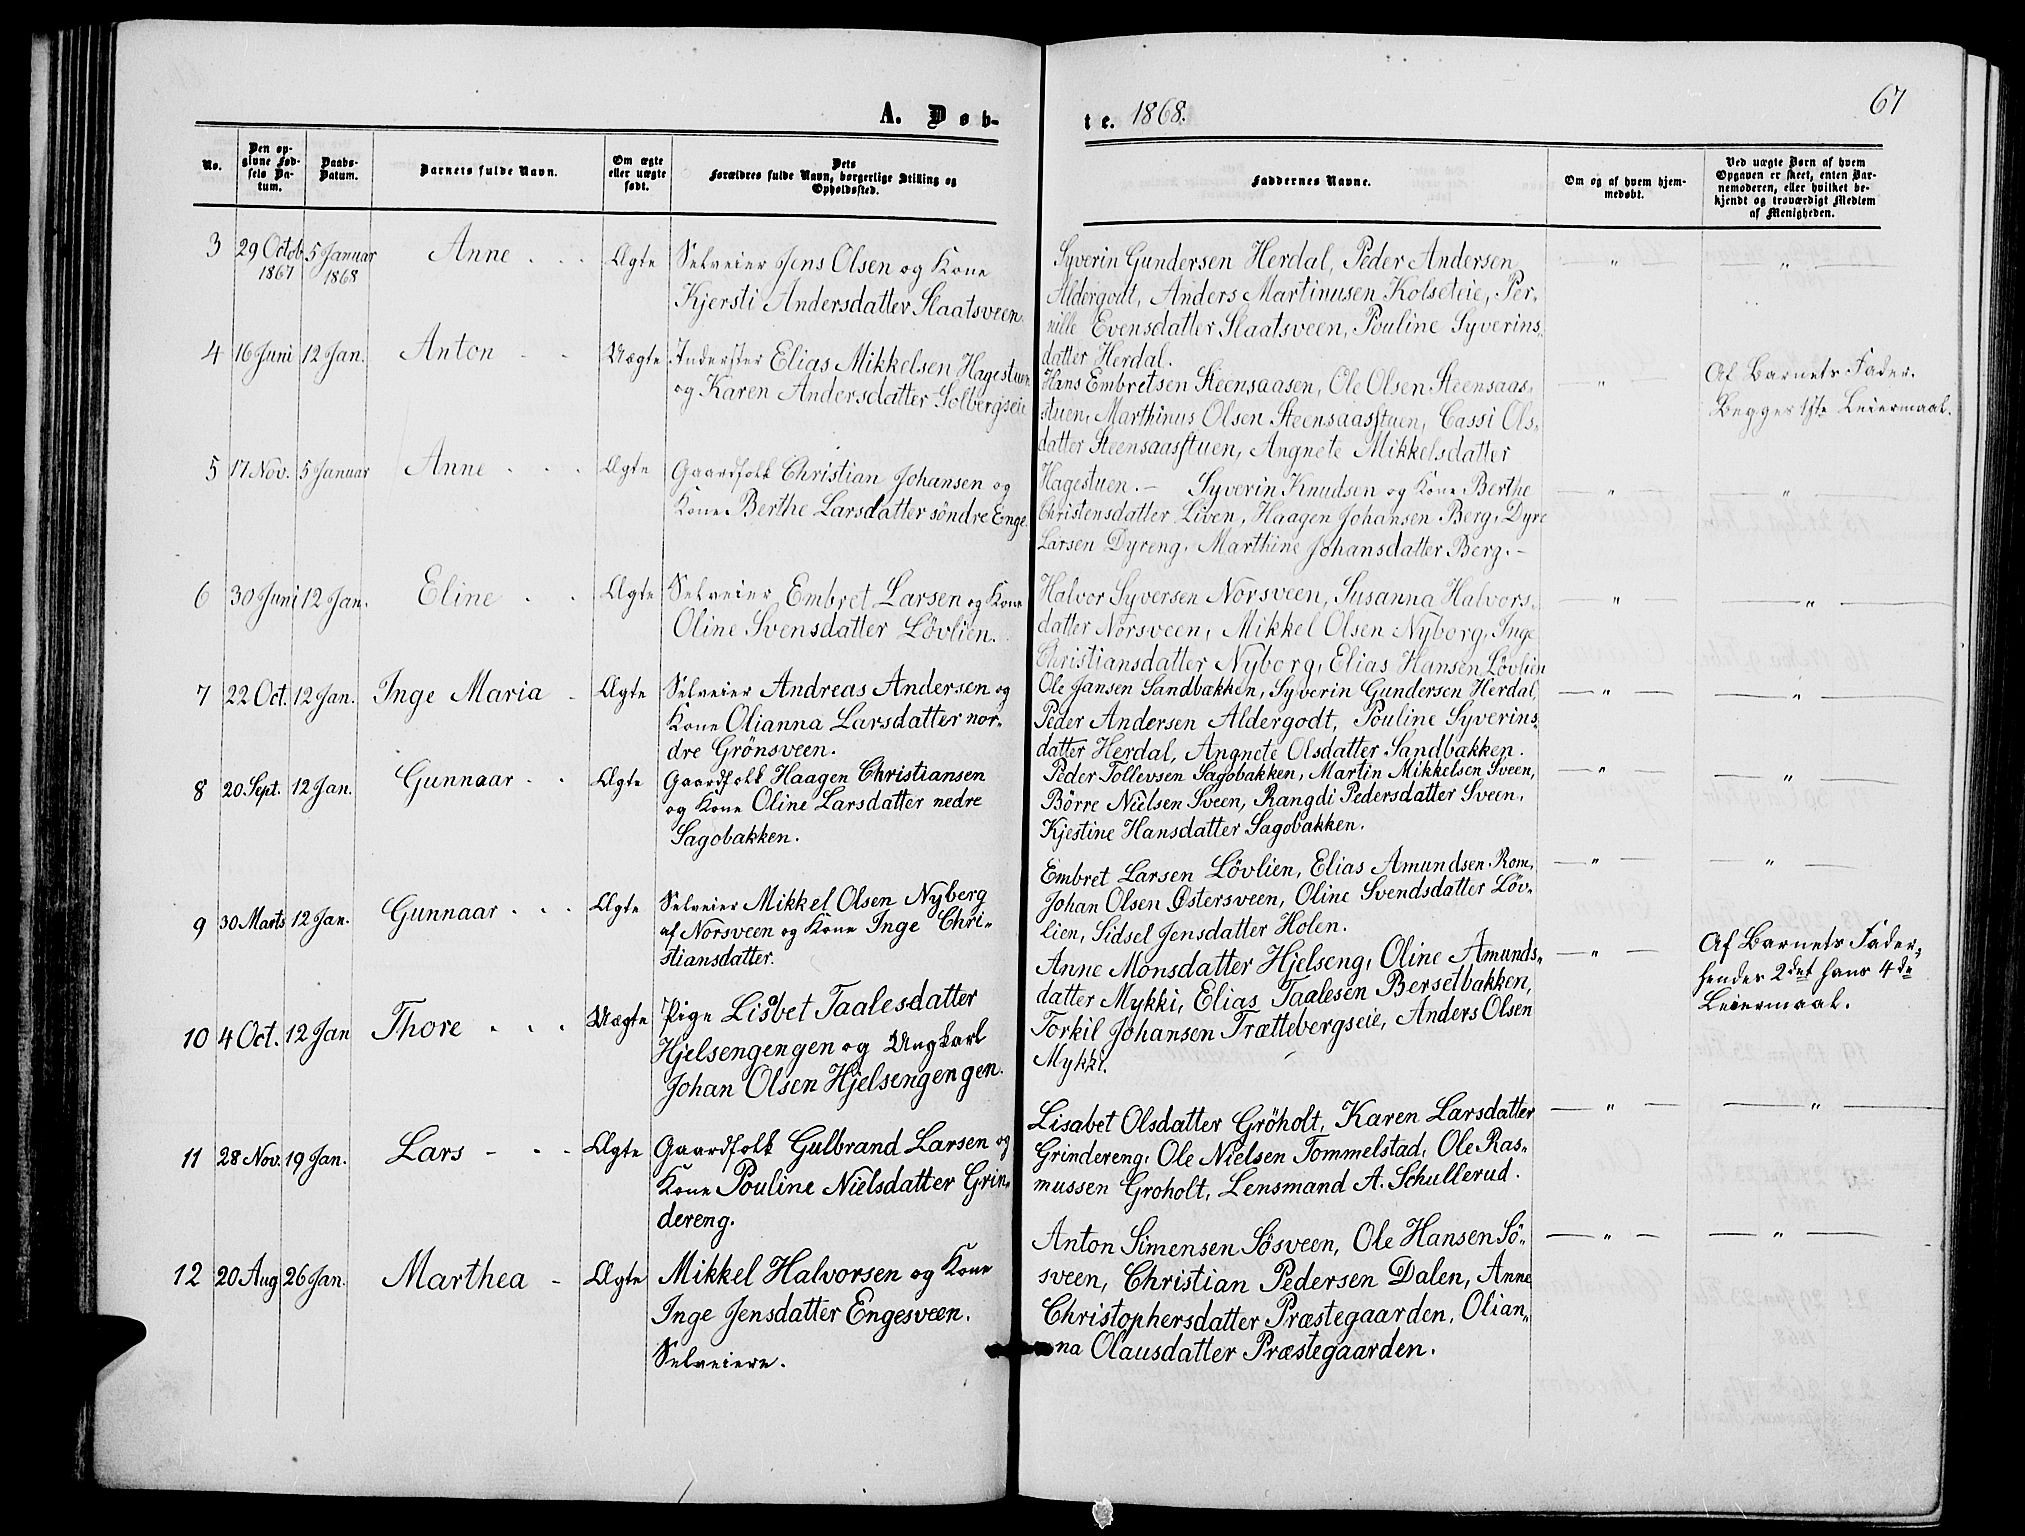 67
A. Døb-
te. 1868.
No.
Den op-
givne Fød-
sels Da-
tum.
Daabs-
Datum.
Barnets fulde Navn.
Om ægte
eller uægte
født.
Dets
Forældres fulde Navn, borgerlige Stilling og
Opholdssted.
Faddernes Navne.
Om og af hvem hjem-
medøbt.
Ved uægte Børn af hvem
Opgaven er skeet, enten Bar-
nemoderen, eller hvilket be-
kjendt og troværdigt Medlem
af Menigheden.
3 29 Octob. 5 Januar Anne Ægte Selveier Jens Olsen og Kone
1867 1868
Kjersti Andersdatter Slaatsveen.
Syverin Gundersen Herdal, Peder Andersen
Aldergodt, Anders Martinusen Kolseteie, Per-
nille Evensdatter Slaatsveen, Pouline Syverins-
datter Herdal.
4 16 Juni 12 Jan. Anton Uægte Inderster Elias Mikkelsen Hagestuen
og Karen Andersdatter Solbergseie
Hans Embretsen Steensaasen, Ole Olsen Steensaas-
stuen, Marthinus Olsen Steensaasstuen, Cassi Ols-
datter Steensaasstuen, Angnete Mikkelsdatter
Hagestuen.
Af Barnets Fader.
Begges 1ste Leiermaal.
5 17 Nov. 5 Januar Anne Ægte Gaardfolk Christian Johansen og
Kone Berthe Larsdatter söndre Enge.
Syverin Knudsen og Kone Berthe
Christensdatter Liven, Haagen Johansen Berg, Dyre
Larsen Dyreng, Marthine Johansdatter Berg.
6 30 Juni 12 Jan. Eline Ægte Selveier Embret Larsen og Kone
Oline Svensdatter Lövlien.
Halvor Syversen Norsveen, Susanna Halvors-
datter Norsveen, Mikkel Olsen Nyborg, Inge
Christiansdatter Nyborg, Elias Hansen Lövlien
7 22 Oct. 12 Jan. Inge Maria Ægte Selveier Andreas Andersen og
Kone Olianna Larsdatter nor-
dre Grönsveen.
Ole Jansen Sandbakken, Syverin Gundersen Herdal,
Peder Andersen Aldergodt, Pouline Syverins-
datter Herdal, Angnete Olsdatter Sandbakken.
8 20 Sept. 12 Jan. Gunnaar Ægte Gaardfolk Haagen Christiansen
og Kone Oline Larsdatter nedre
Sagobakken.
Peder Tollevsen Sagobakken, Martin Mikkelsen Sveen,
Börre Nielsen Sveen, Rangdi Pedersdatter Sveen,
Kjestine Hansdatter Sagobakken.
9 30 Marts 12 Jan. Gunnaar Ægte Selveier Mikkel Olsen Nyberg
af Norsveen og Kone Inge Chri-
stiansdatter.
Embret Larsen Lövlien, Elias Amundsen Rom,
Johan Olsen Östersveen, Oline Svendsdatter Löv-
lien, Sidsel Jensdatter Holen.
10 4 Oct. 12 Jan Thore Uægte Pige Lisbet Taalesdatter
Hjelsengengen og Ungkarl
Johan Olsen Hjelsengengen.
Anne Monsdatter Hjelseng, Oline Amunds-
datter Mykki, Elias Taalesen Bersetbakken,
Torkil Johansen Trættebergseie, Anders Olsen
Mykki.
Af Barnets Fader,
hendes 2det hans 4de
Leiermaal.
11 28 Nov. 19 Jan. Lars Ægte Gaardfolk Gulbrand Larsen og
Kone Pouline Nielsdatter Grin-
dereng.
Lisabet Olsdatter Gröholt, Karen Larsdatter
Grindereng, Ole Nielsen Tommelstad, Ole Ras-
mussen Groholt, Lensmand A. Schullerud.
12 20 Aug 26 Jan. Marthea Ægte Mikkel Halvorsen og Kone
Inge Jensdatter Engesveen.
Selveiere.
Anton Simensen Sösveen, Ole Hansen Sö-
sveen, Christian Pedersen Dalen, Anne
Christophersdatter Præstegaarden, Olian-
na Olausdatter Præstegaarden.